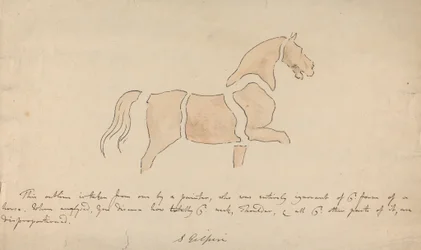 This outline is taken from one by a painter, who was entirely ignorant of ye form of a
horse. When analyzed, you discover how totally ye neck, shoulder, & all ye other parts of it, are
disproportioned.
S Gilpin